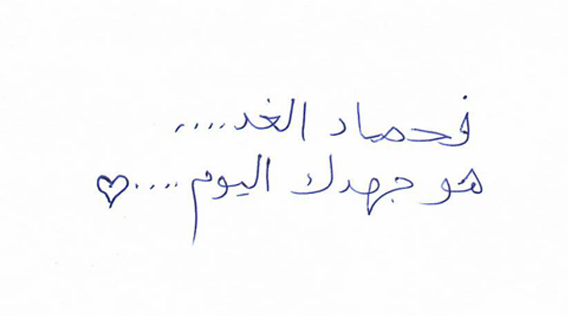 فحصاد الغد.....
هو جهدك اليوم....♡